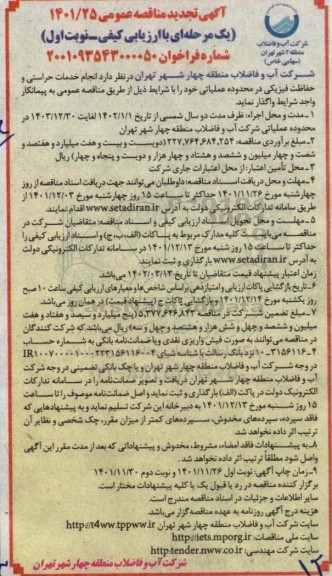 آگهی تجدید مناقصه عمومی ۱۴۰۱/۲۵
(یک مرحله‌ای با ارزیابی کیفی-نوبت اول)
شماره فراخوان ۲۰۰۱۰۹۳۵۴۳۰۰۰۰۵۰
شرکت آب و فاضلاب
منطقه ۴ شهر تهران
(سهامی خاص)
شرکت آب و فاضلاب منطقه چهار شهر تهران درنظر دارد انجام خدمات حراستی و
حفاظت فیزیکی در محدوده عملیاتی خود را با شرایط ذیل از طریق مناقصه عمومی به پیمانکار
واجد شرایط واگذار نماید.
۱-مدت و محل اجراء: ظرف مدت دو سال شمسی از تاریخ ۱۴۰۲/۱/۱ لغایت ۱۴۰۳/۱۲/۳۰ در
محدوده عملیاتی شرکت آب و فاضلاب منطقه چهار شهر تهران
۲-مبلغ برآوردی مناقصه: ۲۲۷,۷۶۴,۶۸۴,۲۵۴ (دویست و بیست و هفت میلیارد و هفتصد و
شصت و چهار میلیون و ششصد و هشتاد و چهار هزار و دویست و پنجاه و چهار) ریال
۳-محل تأمین اعتبار: از محل اعتبارات جاری شرکت
۴-مهلت و محل دریافت اسناد مناقصه: داوطلبان می‌توانند جهت دریافت اسناد مناقصه از روز
چهارشنبه مورخ ۱۴۰۱/۱۱/۲۶ حداکثر تا ساعت ۱۵ روز چهارشنبه مورخ ۱۴۰۱/۱۲/۰۳ از
طریق سامانه تدارکات الکترونیکی دولت به آدرس www.setadiran.ir اقدام نمایند.
۵-مهلت و محل تحویل اسناد ارزیابی کیفی و اسناد مناقصه: متقاضیان شرکت در
مناقصه می‌بایست کلیه مدارک مربوط به پاکات (الف، ب، ج) و اسناد ارزیابی کیفی را
حداکثر تا ساعت ۱۵ روز شنبه مورخ ۱۴۰۱/۱۲/۱۳ در سامانه تدارکات الکترونیکی دولت
به آدرس www.setadiran.ir بارگذاری و ثبت نمایند.
زمان اعتبار پیشنهاد قیمت متقاضیان تا تاریخ ۱۴۰۲/۰۳/۱۳ می‌باشد.
۶-تاریخ بازگشائی پاکات ارزیابی و امتیازدهی براساس شاخص‌ها و معیارهای ارزیابی کیفی ساعت ۱۰ صبح
روز یکشنبه مورخ ۱۴۰۱/۱۲/۱۴ و بازگشایی پاکات ج (پیشنهاد قیمت) در همان روز می‌باشد.
۷-مبلغ تضمین شرکت در مناقصه ۵,۳۷۷,۶۴۶,۸۴۳ (پنج میلیارد و سیصد و هفتاد و هفت
میلیون و ششصد و چهل و شش هزار و هشتصد و چهل و سه) ریال می‌باشد که شرکت کنندگان
در مناقصه می‌توانند به صورت فیش واریزی نقدی ویا ضمانت‌نامه بانکی به شماره حساب
در وجه شرکت آب و فاضلاب منطقه چهار شهر تهران و یا چک بانکی تضمینی در وجه شرکت
آب و فاضلاب منطقه چهار شهر تهران دریافت و تصویر ضمانت‌نامه را در سامانه تدارکات
الکترونیک دولت در پاکت (الف) بارگذاری و ثبت نماید و اصل ضمانت‌نامه موصوف را تا ساعت
۱۵ روز شنبه مورخ ۱۴۰۱/۱۲/۱۳ به دبیرخانه این شرکت تسلیم نماید و به پیشنهادهایی که
فاقد سپرده، سپرده‌های مخدوش، سپرده‌های کمتر از میزان مقرر، چک شخصی و نظایر آن
ترتیب اثر داده نخواهد شد.
۸-به پیشنهادات فاقد امضاء، مشروط، مخدوش و پیشنهاداتی که بعد از مدت مقرر این آگهی
واصل شود مطلقاً ترتیب اثر داده نخواهد شد.
۹-زمان چاپ آگهی: نوبت اول ۱۴۰۱/۱۱/۲۶ و نوبت دوم ۱۴۰۱/۱۱/۳۰
برگزار کننده مناقصه در رد یا قبول یک یا کلیه پیشنهادات مختار است.
سایر اطلاعات و جزئیات در اسناد مناقصه مندرج است.
هزینه درج آگهی روزنامه به عهده مناقصه‌گزار می‌باشد.
سایت شرکت آب و فاضلاب منطقه چهار شهر تهران http://t4ww.tppww.ir
سایت ملی مناقصات: http://iets.mporg.ir
سایت شرکت مهندسی: http:tender.nww.co.ir
شرکت آب و فاضلاب منطقه چهار شهر تهران